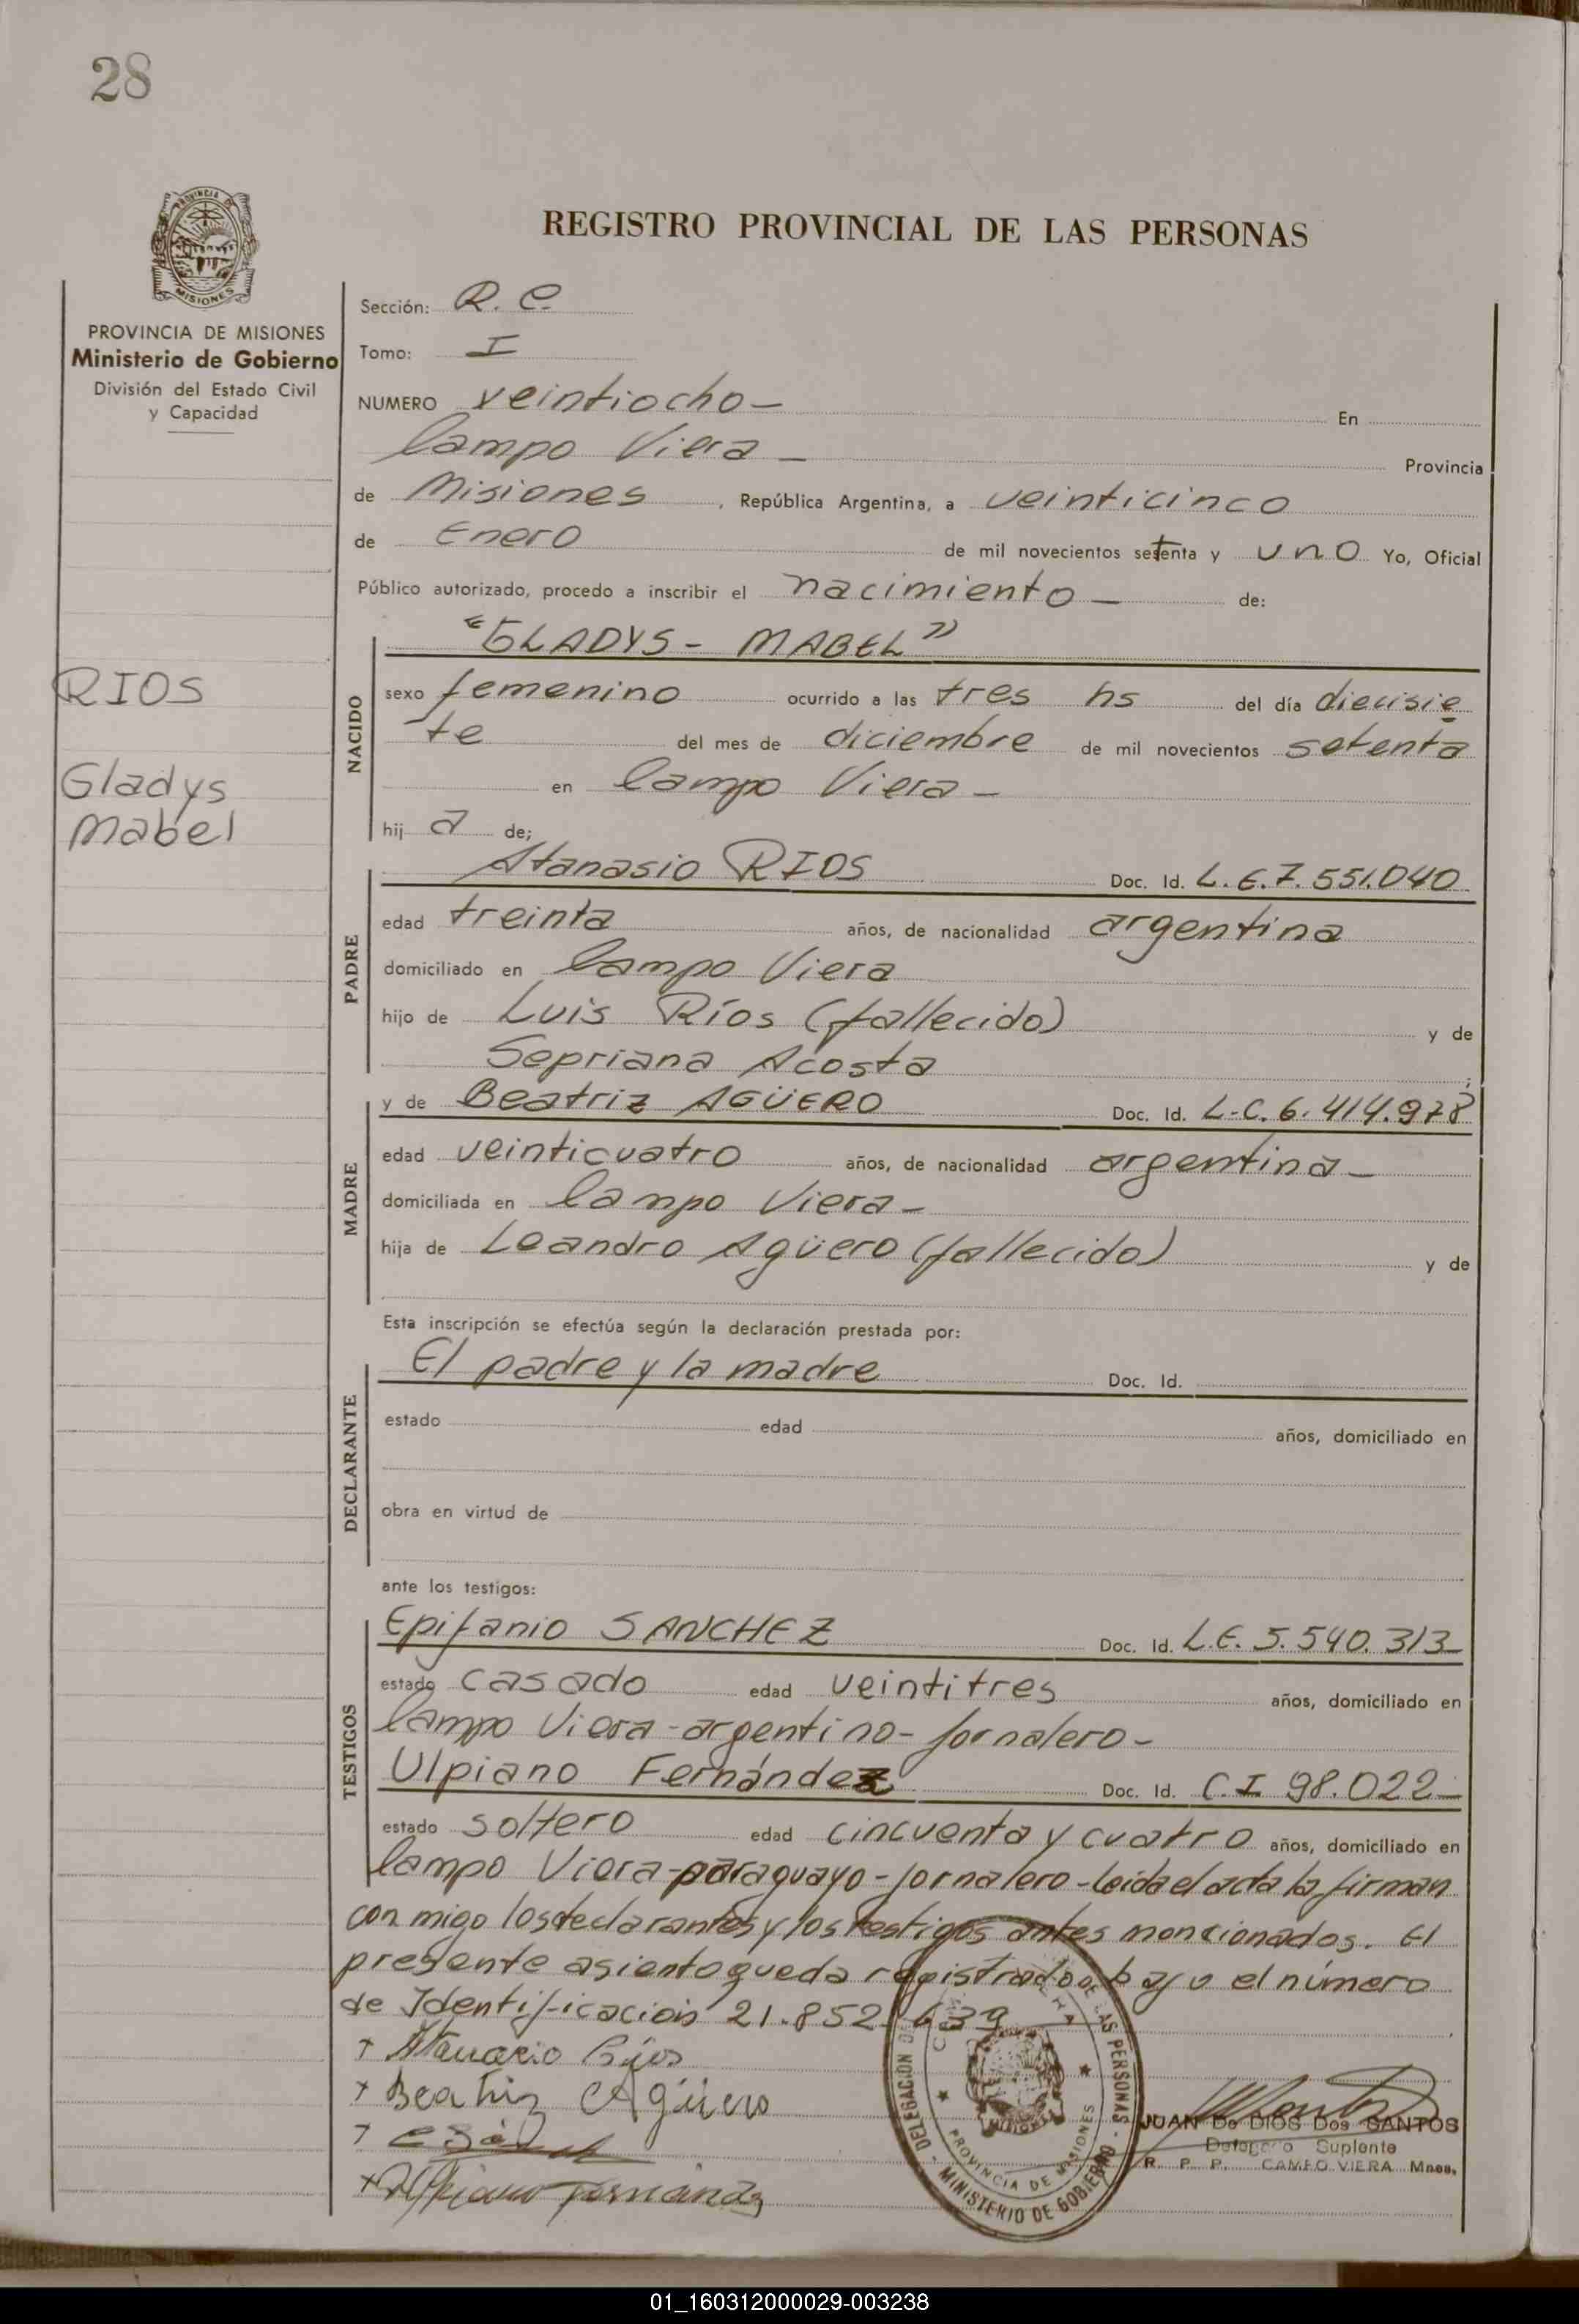 28
REGISTRO PROVINCIAL DE LAS PERSONAS
PROVINCIA DE MISIONES
Ministerio de Gobierno
División del Estado Civil
y Capacidad
RIOS
Gladys
Mabel
Sección: R. C.
Tomo: I
NUMERO veintiocho — En
Campo Viera — Provincia
de Misiones, República Argentina, a veinticinco
de Enero de mil novecientos setenta y uno Yo, Oficial
Público autorizado, procedo a inscribir el nacimiento — de:
NACIDO
"GLADYS - MABEL"
sexo femenino ocurrido a las tres hs del día diecisie
te del mes de diciembre de mil novecientos setenta
en Campo Viera —
hij a de;
PADRE
Atanasio RIOS Doc. Id. L.E.7.551.040
edad treinta años, de nacionalidad argentina
domiciliado en Campo Viera
hijo de Luis Ríos (fallecido) y de
Sepriana Acosta ;
MADRE
y de Beatriz AGÜERO Doc. Id. L.C.6.414.978
edad veinticuatro años, de nacionalidad argentina —
domiciliada en Campo Viera —
hija de Leandro Agüero (fallecido) y de
Esta inscripción se efectúa según la declaración prestada por:
DECLARANTE
El padre y la madre Doc. Id.
estado edad años, domiciliado en
obra en virtud de
ante los testigos:
TESTIGOS
Epifanio SANCHEZ Doc. Id. L.E. 5.540.313
estado casado edad veintitres años, domiciliado en
Campo Viera - argentino - jornalero -
Ulpiano Fernández Doc. Id. C.I 98.022
estado soltero edad cincuenta y cuatro años, domiciliado en
Campo Viera - paraguayo - jornalero - Leida el acta la firman
con migo los declarantes y los testigos antes mencionados. El
presente asiento queda registrado bajo el número
de Identificación 21.852.639
+ Atanacio Rios
+ Beatriz Agüero
+ Ulpiano Fernandz
DELEGACION DE LAS PERSONAS - MINISTERIO DE GOBIERNO
PROVINCIA DE MISIONES
MISIONES
JUAN De DIOS Dos SANTOS
Delegado Suplente
R. P. P. CAMPO VIERA Mnes.
01_160312000029-003238